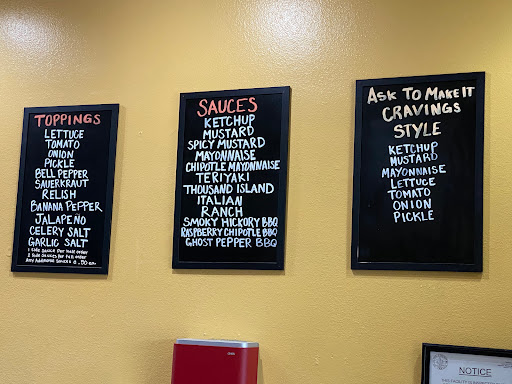 TOPPINGS
LETTUCE
TOMATO
ONION
PICKLE
BELL PEPPER
SAUERKRAUT
RELISH
BANANA PEPPER
JALAPEÑO
CELERY SALT
GARLIC SALT
1 SIDE SAUCE PER HALF ORDER
2 SIDE SAUCES FOR FULL ORDER
ANY ADDITIONAL SAUCES
SAUCES
KETCHUP
MUSTARD
SPICY MUSTARD
MAYONNAISE
CHIPOTLE MAYONNAISE
TERIYAKI
THOUSAND ISLAND
ITALIAN
RANCH
SMOKY HICKORY BBQ
RASPBERRY CHIPOTLE BBQ
GHOST PEPPER BBQ
ASK TO MAKE IT
CRAVINGS
STYLE
KETCHUP
MUSTARD
MAYONNAISE
LETTUCE
TOMATO
ONION
PICKLE
NOTICE